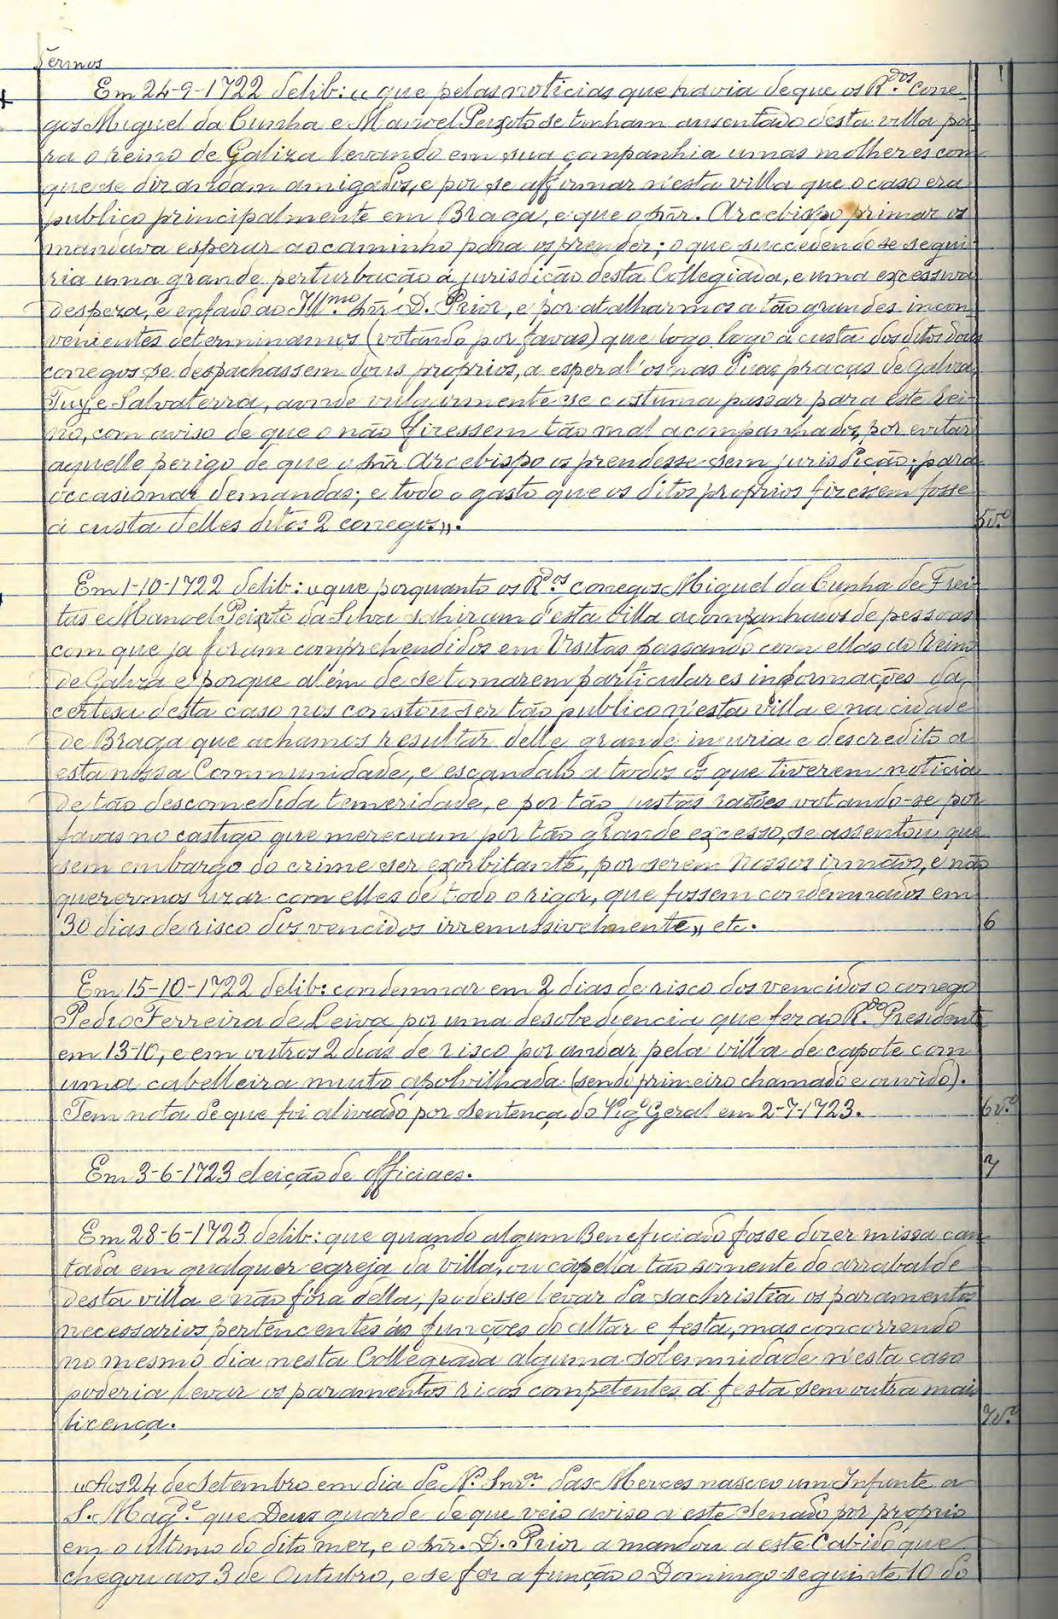 Termos
Em 24-9-1722 delib: « que pelas noticias que havia de que os R.dos Cone-
gos Miguel da Cunha e Manoel Peixoto se tinham ausentado desta villa pa-
ra o reino de Galiza levando em sua companhia umas molheres com
que se diz andam amigados, e por se affirmar n'esta villa que o caso era
publico principalmente em Braga, e que o Snr. Arcebispo primaz os
mandava esperar ao caminho para os prender; o que succedendo se segui-
ria uma grande perturbação á jurisdição desta Collegiada, e uma excessiva
despeza, e enfado ao Ill.mo Snr. D. Prior, e por atalharmos a tão grandes incon-
venientes determinamos (votando por favas) que logo logo á custa dos ditos dous
conegos se despachassem dous proprios, a esperal'os nas duas praças de Galiza,
Tuy, e Salvaterra, aonde vulgarmente se costuma passar para este Rei-
no, com aviso de que o não fizessem tão mal acompanhados, por evitar
aquelle perigo de que o Snr Arcebispo os prendesse sem jurisdição, para
occasionar demandas; e todo o gasto que os ditos proprios fizessem fosse
á custa delles ditos 2 conegos». 5v.º
Em 1-10-1722 delib: « que porquanto os R.dos conegos Miguel da Cunha de Frei-
tas e Manoel Peixoto da Silva sahiram d'esta villa acompanhados de pessoas
com que ja foram comprehendidos em Visitas passando com ellas ao Reino
de Galiza e porque além de se tomarem particulares informações da
certesa desta caso nos constou ser tão publico n'esta villa e na cidade
de Braga que achamos resultar delle grande incuria e descredito a
esta nossa Communidade, e escandalo a todos os que tiverem noticia
de tão descomedida temeridade, e por tão justas rasões votando-se por
favas no castigo que mereciam por tão grande excesso, se assentou que
sem embargo do crime ser exorbitante, por serem Nossos irmãos, e não
querermos uzar com elles de todo o rigor, que fossem condemnados em
30 dias de risco dos vencidos irremissivelmente» etc. 6
Em 15-10-1722 delib: condemnar em 2 dias de risco dos vencidos o conego
Pedro Ferreira de Leiva por uma desobediencia que fez ao R.do Presidente
em 13-10, e em outros 2 dias de risco por andar pela villa de capote com
uma cabelleira muito apolvilhada (sendo primeiro chamado e ouvido).
Tem nota de que foi alliviado por sentença do Vig.º Geral em 2-7-1723. 6v.º
Em 3-6-1723 eleição de officiaes. 7
Em 28-6-1723 delib: que quando algum Beneficiado fosse dizer missa can-
tada em qualquer egreja da villa, ou capella tão somente do arrabalde
desta villa e não fóra della, podesse levar da sachristia os paramentos
necessarios pertencentes ás funções do altar e festa, mas concorrendo
no mesmo dia nesta Collegiada alguma solemnidade n'esta caso
poderia levar os paramentos ricos competentes á festa sem outra mais
licença. 7v.º
« Aos 24 de Setembro em dia de N. Snr.a das Merces nasceu um Infante a
S. Mag.de que Deus guarde de que veio aviso a este Senado por proprio
em o ultimo do dito mez, e o Snr. D. Prior a mandou a este Cabido que
chegou aos 3 de Outubro, e se fez a função o Domingo seguinte 10 do